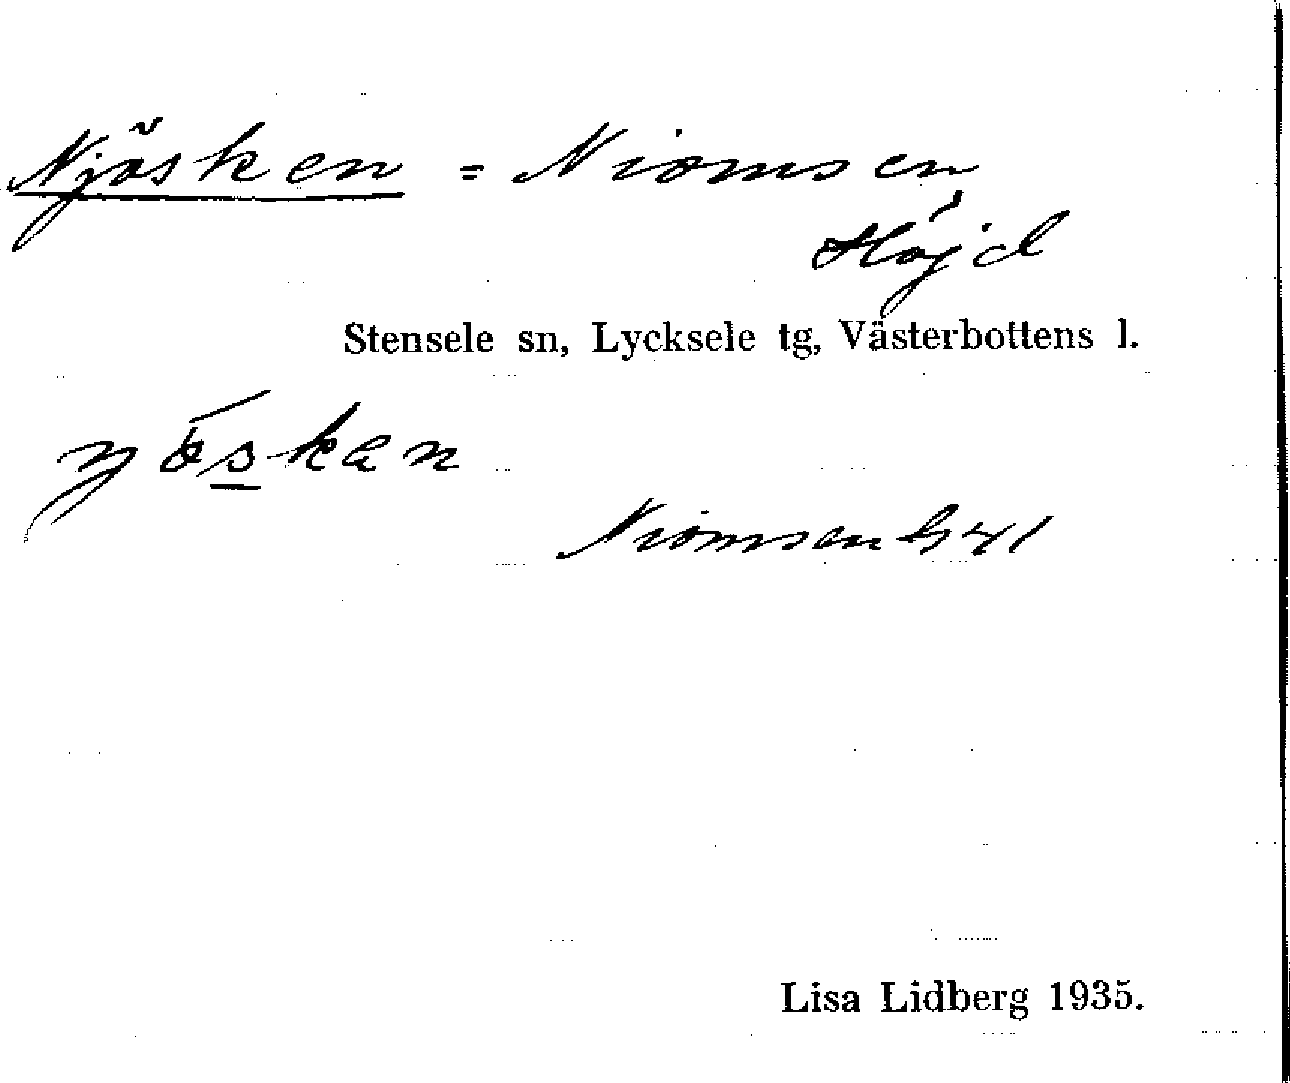 Njösken = Niomsen
Höjd
Stensele sn, Lycksele tg, Västerbottens l.
Niomsen G41
Lisa Lidberg 1935.